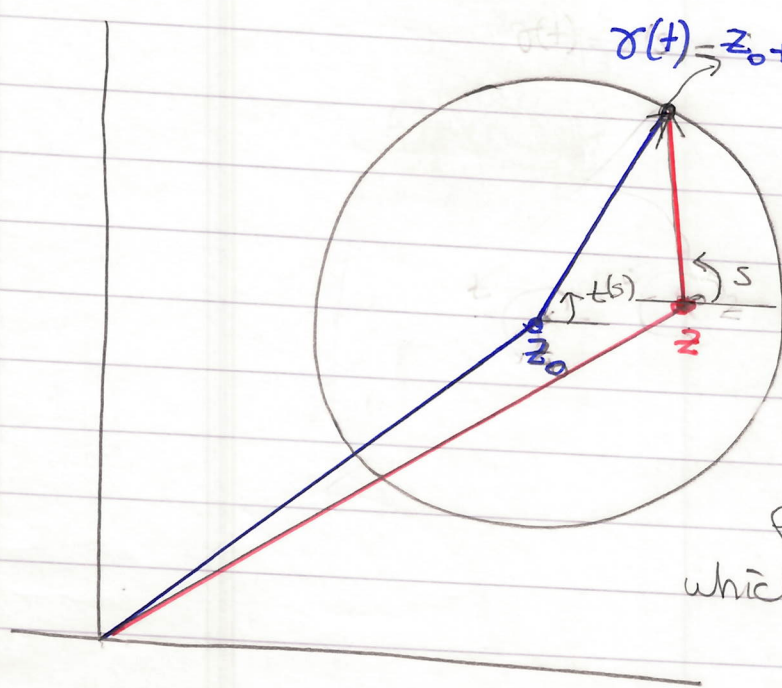 γ(t) = z₀ +
t(s)
s
z₀
z
whic